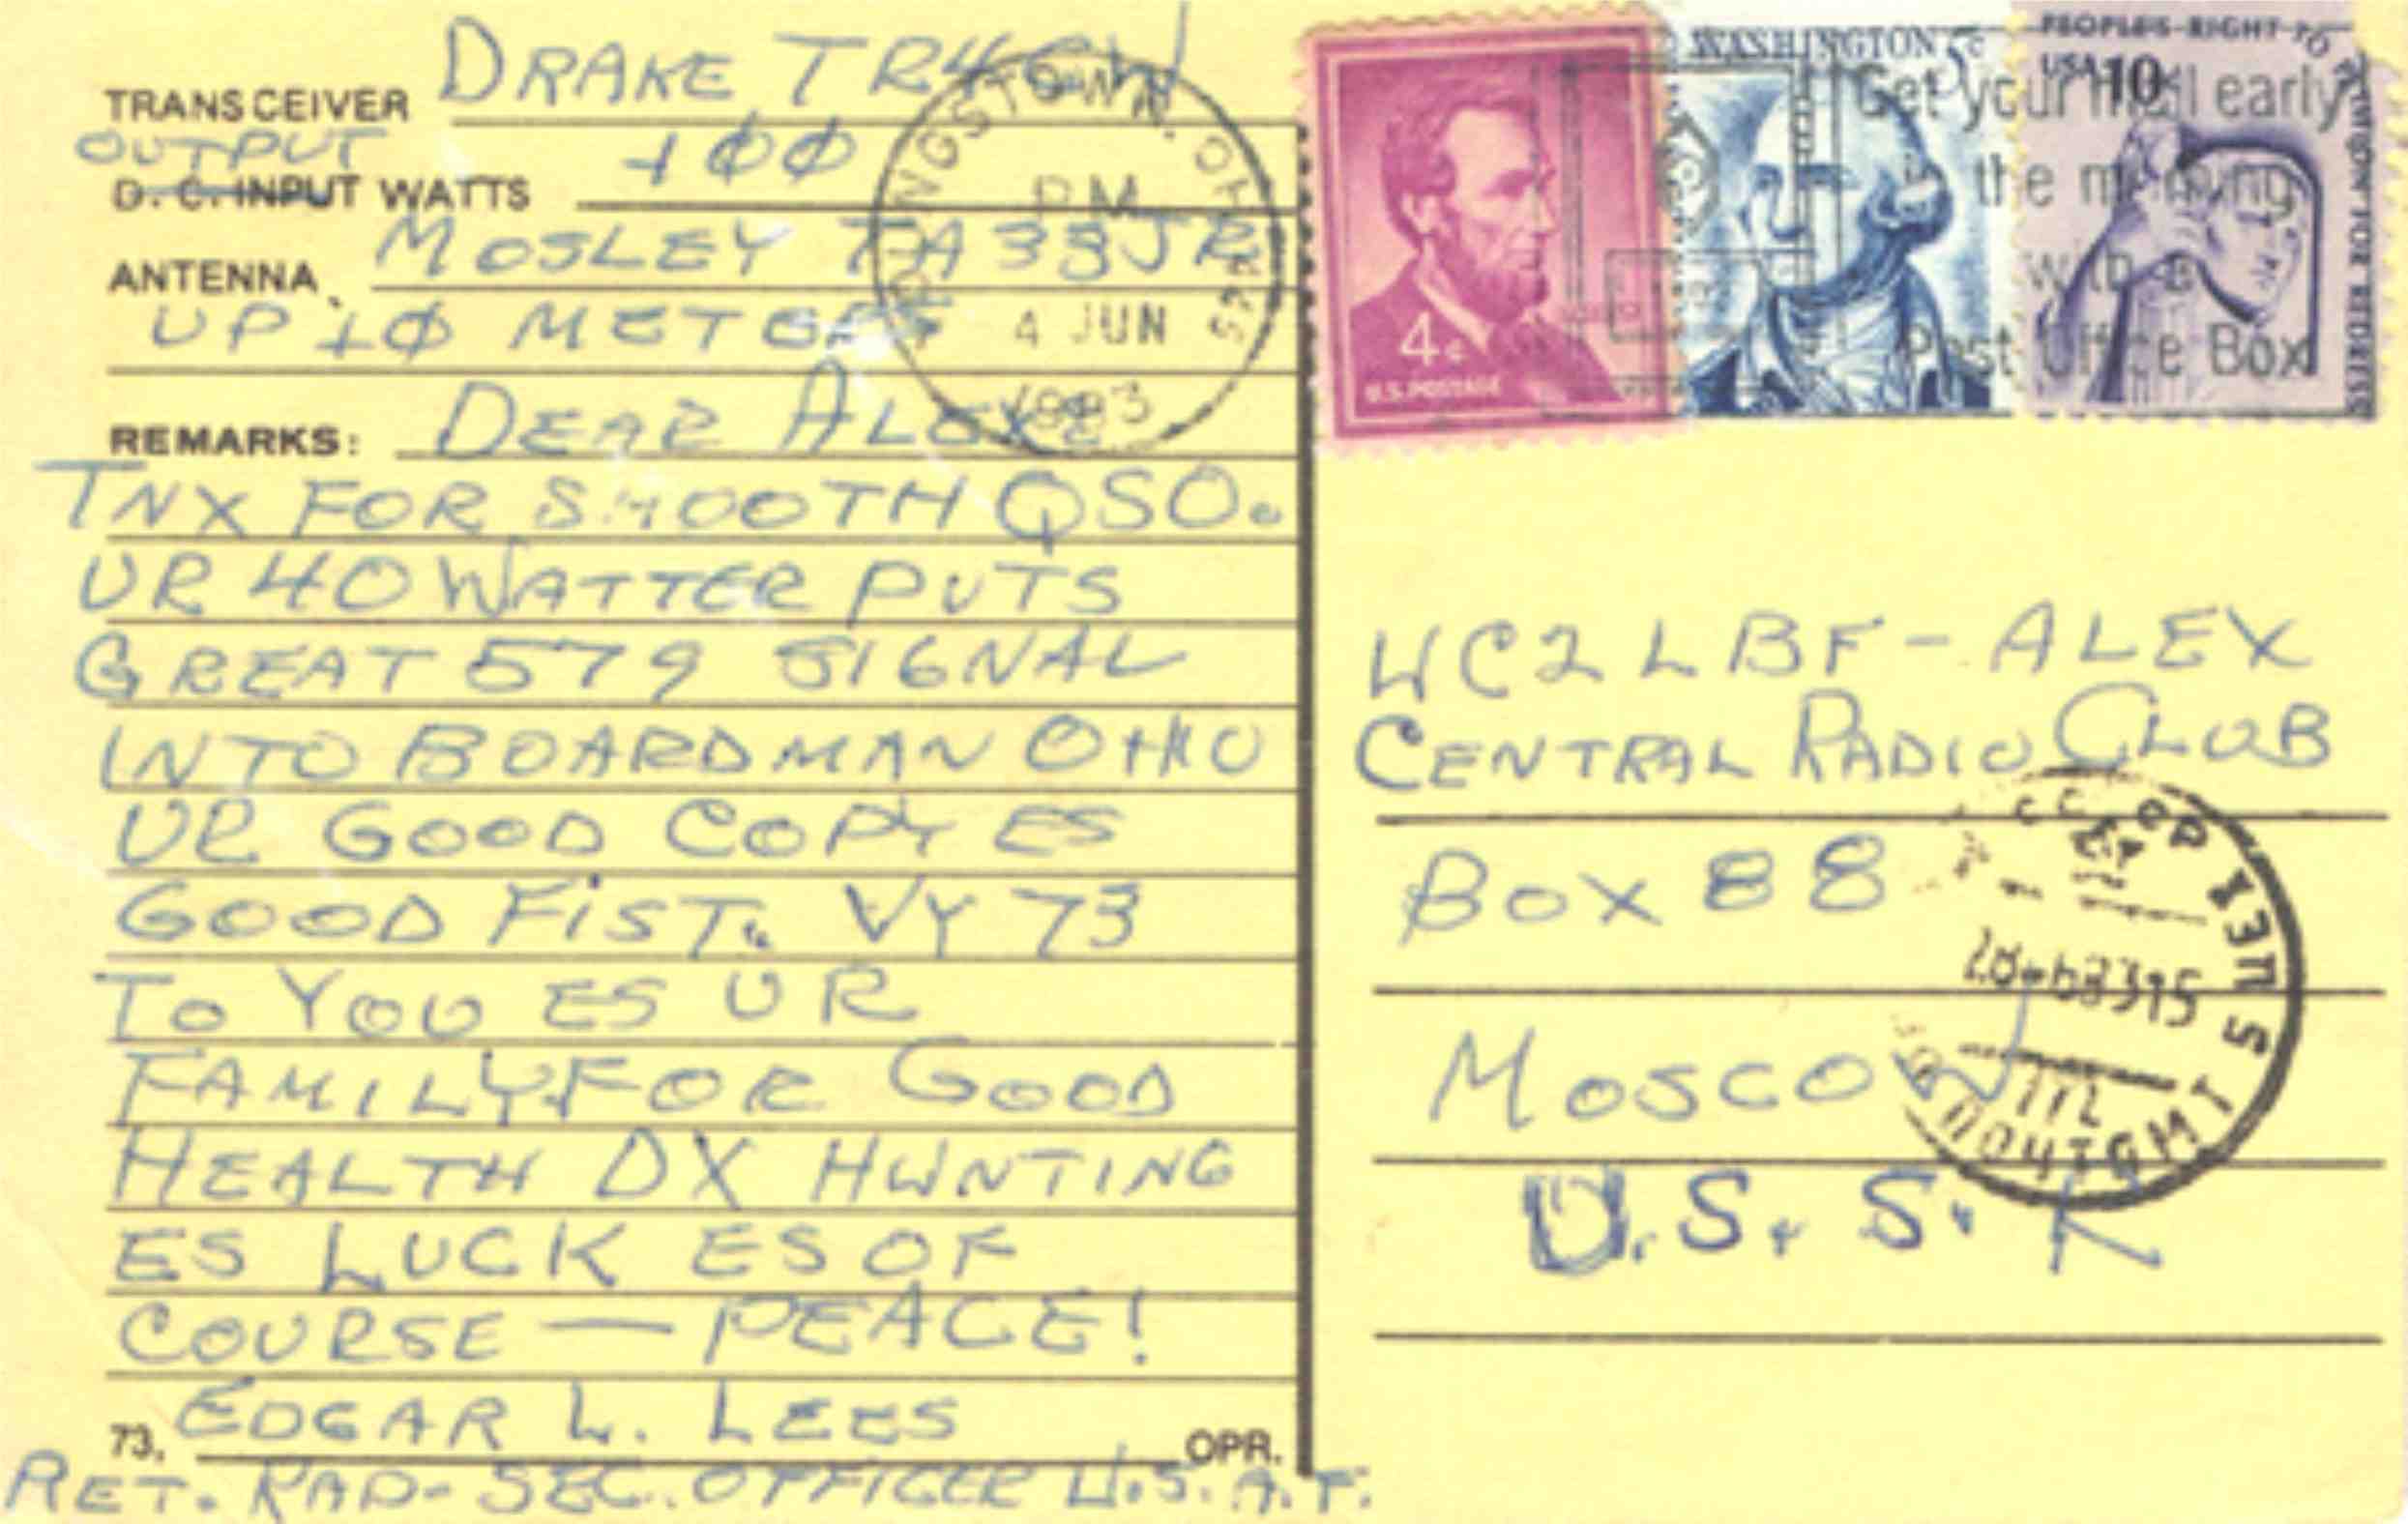 TRANSCEIVER DRAKE
OUTPUT
D.C. INPUT WATTS 100
ANTENNA MOSLEY TA33JR
UP 10 METERS
REMARKS: DEAR ALEX
TNX FOR SMOOTH QSO.
UR 40 WATTER PUTS
GREAT 579 SIGNAL
INTO BOARDMAN OHIO
UR GOOD COPY ES
GOOD FIST. VY 73
TO YOU ES UR
FAMILY FOR GOOD
HEALTH DX HUNTING
ES LUCK ES OF
COURSE — PEACE!
73, EDGAR L. LEES OPR.
RET. RAD-SEC. OFFICER U.S.A.F.
YOUNGSTOWN, OH
PM
4 JUN
1983
4¢
U.S. POSTAGE
WASHINGTON 5¢
PEOPLE'S RIGHT TO PETITION FOR REDRESS
USA 10c
Get your mail early
in the morning
with a
Post Office Box
UC2LBF - ALEX
CENTRAL RADIO CLUB
BOX 88
MOSCOW
U.S.S.R